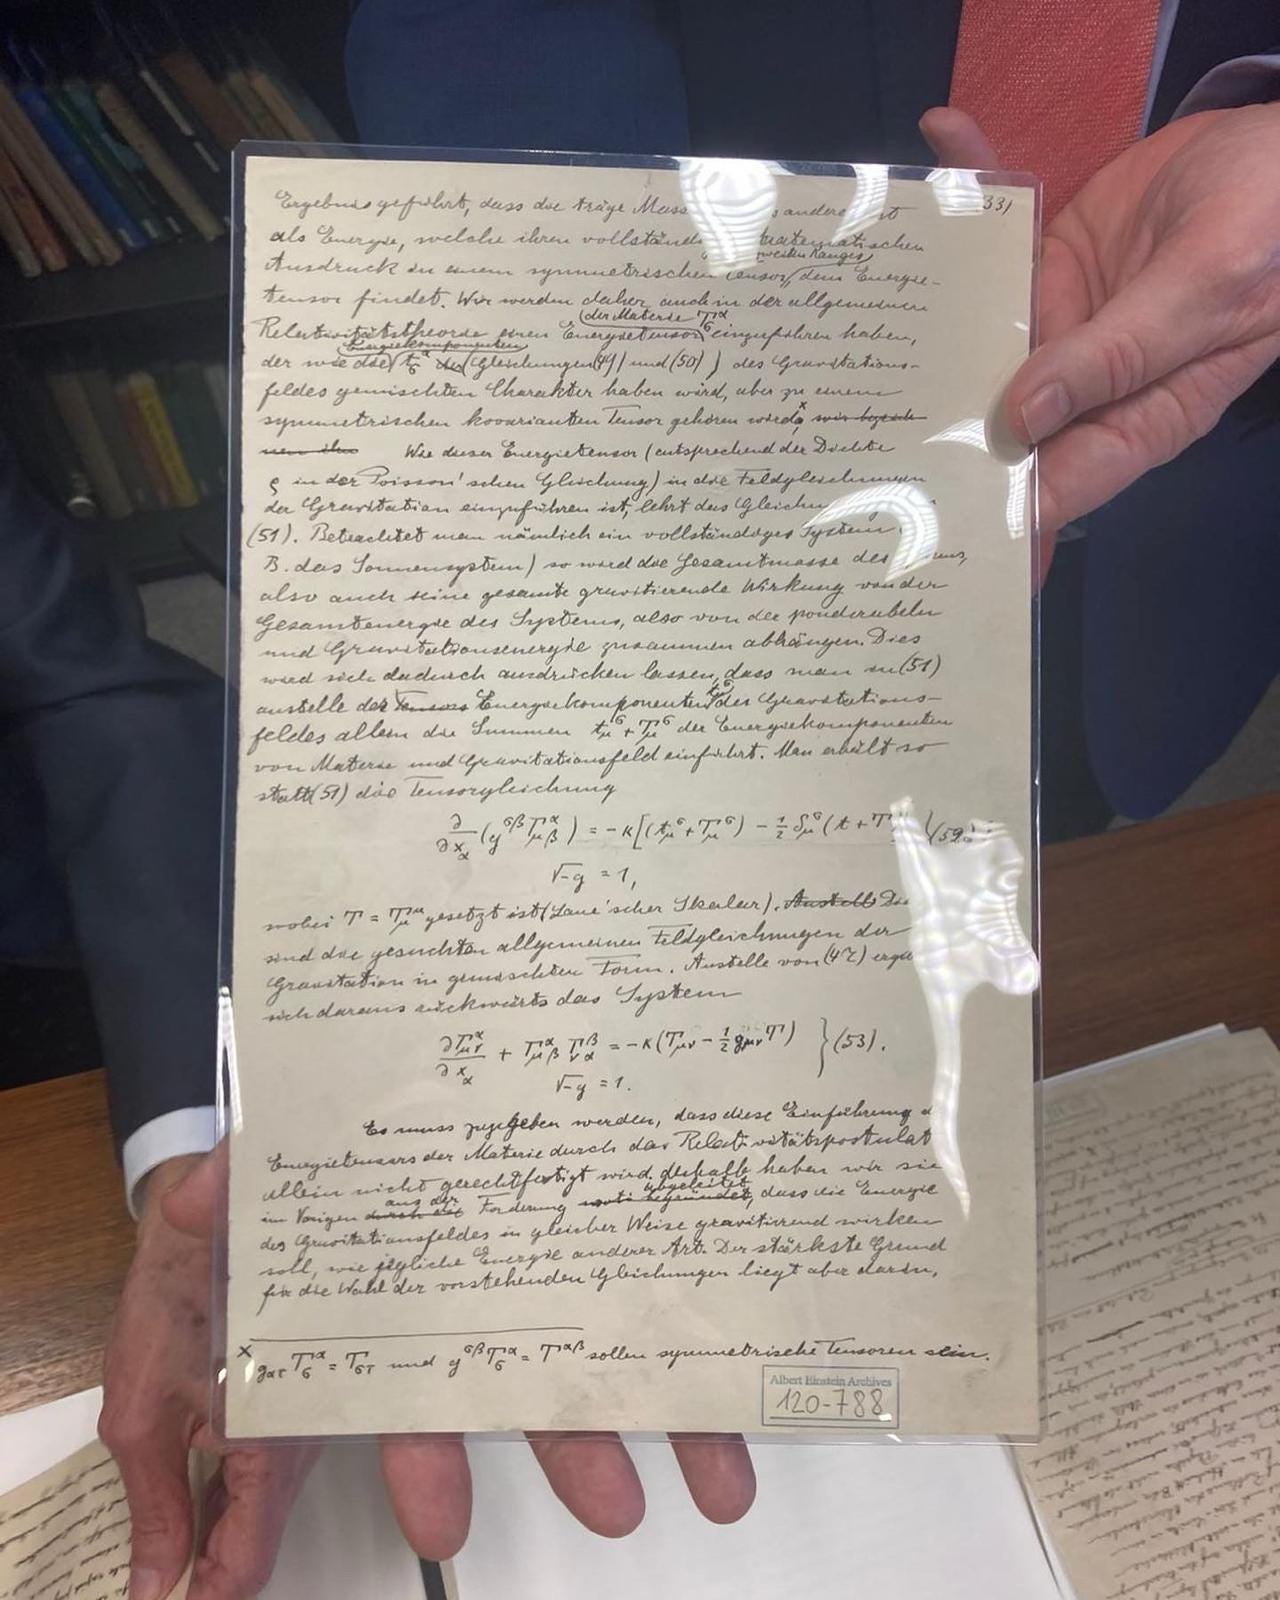 33)
Ergebnis geführt, dass die träge Masse anderes ist
als Energie, welche ihren vollständ mathematischen
zweiten Ranges
Ausdruck in einem symmetrischen Tensor, dem Energie-
tensor findet. Wir werden daher auch in der allgemeinen
der Materie T_σ^α
Relativitätstheorie einen Energietensor einzuführen haben,
Energiekomponenten
der wie die t_σ^α der (Gleichungen (49) und (50)) des Gravitations-
feldes gemischten Charakter haben wird, aber zu einem
symmetrischen kovarianten Tensor gehören wird, x wir bezeich-
nen ihn Wie dieser Energietensor (entsprechend der Dichte
ρ in der Poisson'schen Gleichung) in die Feldgleichungen
der Gravitation einzuführen ist, lehrt das Gleichun
(51). Betrachtet man nämlich ein vollständiges System
B. das Sonnensystem) so wird die Gesamtmasse des
also auch seine gesamte gravitierende Wirkung von der
Gesamtenergie des Systems, also von der ponderabeln
und Gravitationsenergie zusammen abhängen. Dies
wird sich dadurch ausdrücken lassen, dass man in (51)
t_μ^σ
anstelle der Tensors Energiekomponenten des Gravitations-
feldes allein die Summen t_μ^σ + T_μ^σ der Energiekomponenten
von Materie und Gravitationsfeld einführt. Man erhält so
statt (51) die Tensorgleichung
∂/∂x_α (g^{σβ} Γ_{μβ}^α) = -κ[(t_μ^σ + T_μ^σ) - 1/2 δ_μ^σ (t + T } (52)
√-g = 1,
wobei T = T_μ^μ gesetzt ist (Laue'scher Skalar). Anstelle Die
sind die gesuchten allgemeinen Feldgleichungen der
Gravitation in gemischten Form. Anstelle von (47) erg
sich daraus rückwärts das System
∂Γ_{μν}^α/∂x_α + Γ_{μβ}^α Γ_{να}^β = -κ(T_{μν} - 1/2 g_{μν} T) } (53).
√-g = 1.
Es muss zugegeben werden, dass diese Einführung d
Energietensors der Materie durch das Relativitätspostulat
allein nicht gerechtfertigt wird, deshalb haben wir sie
aus der abgeleitet
im Vorigen durch die Forderung begründet, dass die Energie
des Gravitationsfeldes in gleicher Weise gravitierend wirken
soll, wie jegliche Energie anderer Art. Der stärkste Grund
für die Wahl der vorstehenden Gleichungen liegt aber darin,
x g_{ατ} T_σ^α = T_{στ} und g^{σβ} T_σ^α = T^{αβ} sollen symmetrische Tensoren sein.
Albert Einstein Archives
120-788